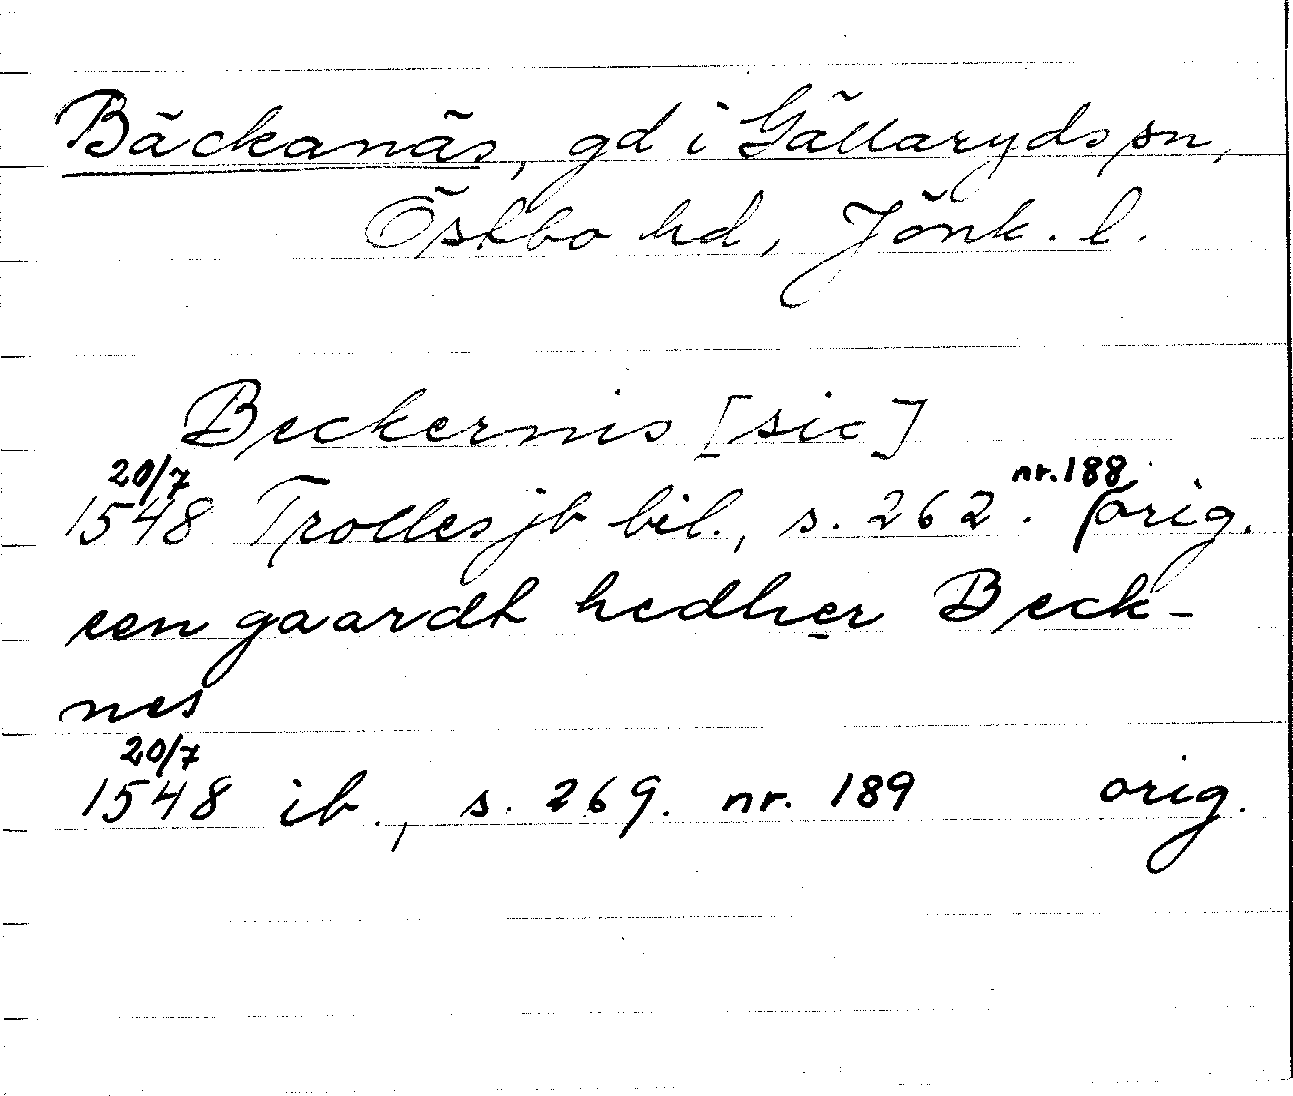 Bäckanäs, gd i Gällaryds sn,
Östbo hd, Jönk. l.
Beckernis [sic]
20/7 nr. 188
1548 Trolles jb bil., s. 262. orig.
een gaardt hedher Beck-
nes
20/7
1548 ib., s. 269. nr. 189 orig.